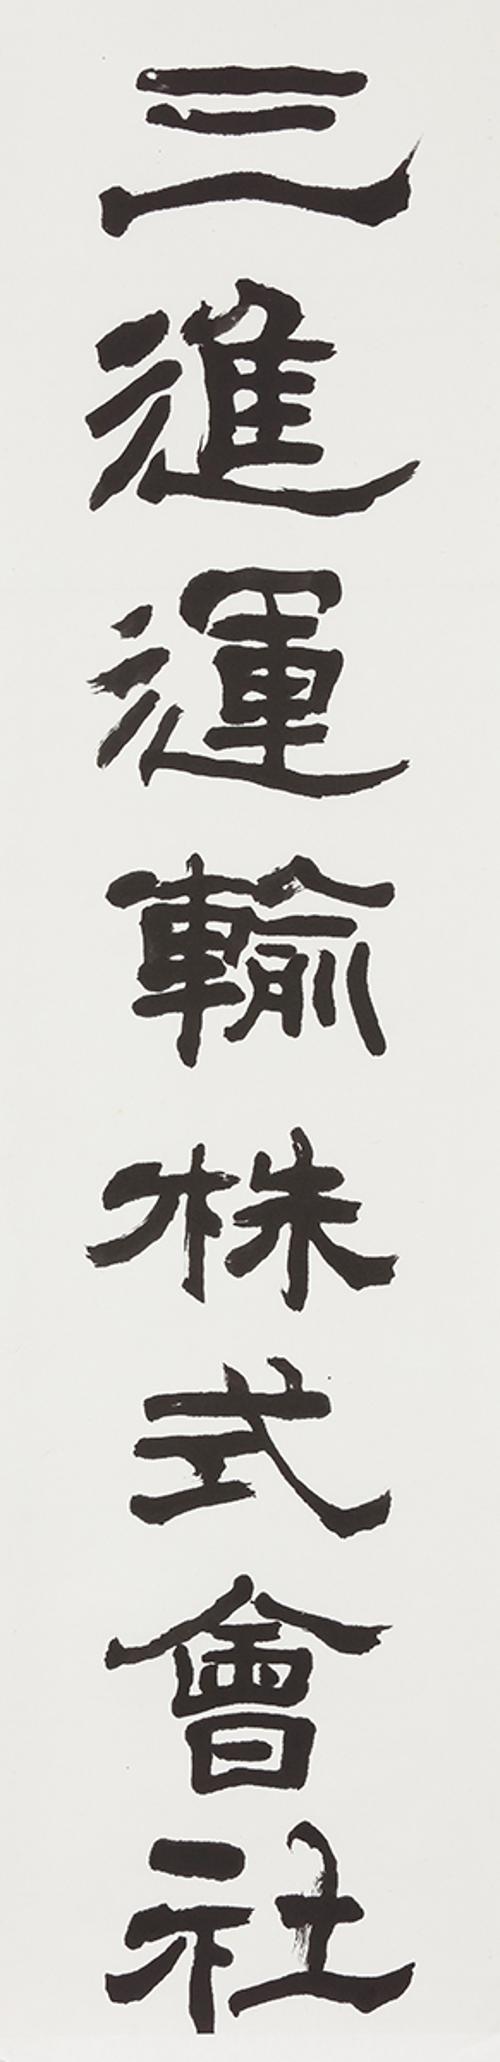 三進運輸株式會社